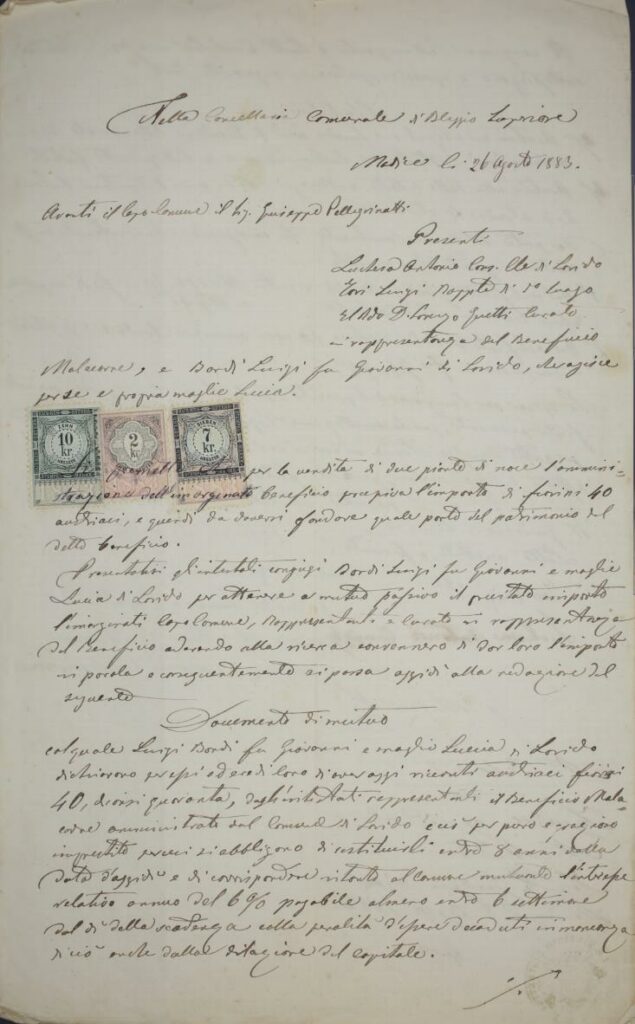 Nella Cancellaria Comunale di Bleggio Superiore
Madice li 26 Agosto 1883.
Avanti il Capo Comune il Sig. Giuseppe Pellegrinatti
Presenti
Luchesa Antonio Cons. di Larido
Luigi Rappte di 1° luogo
D. Lorenzo Guetti Curato
in rappresentanza del Beneficio
Malacarne, e Bordi Luigi fu Giovanni di Larido, che agisce
per se e propria moglie Lucia.
10
kr.
2
kr
7
kr.
Si premette che per la vendita di due piante di noce l'ammini-
strazione dell'inmarginato beneficio percepiva l'importo di fiorini 40
austriaci, e quindi da doversi fondare quale parte del patrimonio del
detto beneficio.
Presentatisi gl'intestati coniugi Bordi Luigi fu Giovanni e moglie
Lucia di Larido per ottenere a mutuo passivo il precitato importo
l'inmarginati Capo Comune, Rappresentante e Curato in rappresentanza
del Beneficio aderendo alla ricerca convennero di dar loro l'importo
in parola e conseguentemente si passa oggidì alla redazione del
seguente
Documento di mutuo
col quale Luigi Bordi fu Giovanni e moglie Luccia di Larido
dichiarano per essi ed eredi loro di aver oggi ricevuti austriaci fiorini
40, diconsi quaranta, dagl'intestati rappresentanti il Beneficio Mala-
carne amministrato dal Comune di Larido e ciò per puro e grazioso
imprestito per cui si obbligano di restituirli entro 8 anni dalla
data d'oggidì e di corrispondere intanto al comune mutuante l'interesse
relativo annuo del 6% pagabile almeno entro 6 settimane
dal dì della scadenza colla penalità d'essere decaduti in mancanza
di ciò anche dalla dilazione del capitale.